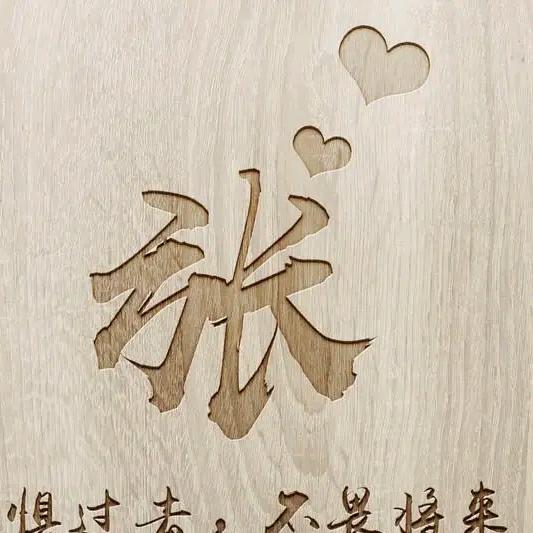 张
惧过去，不畏将来